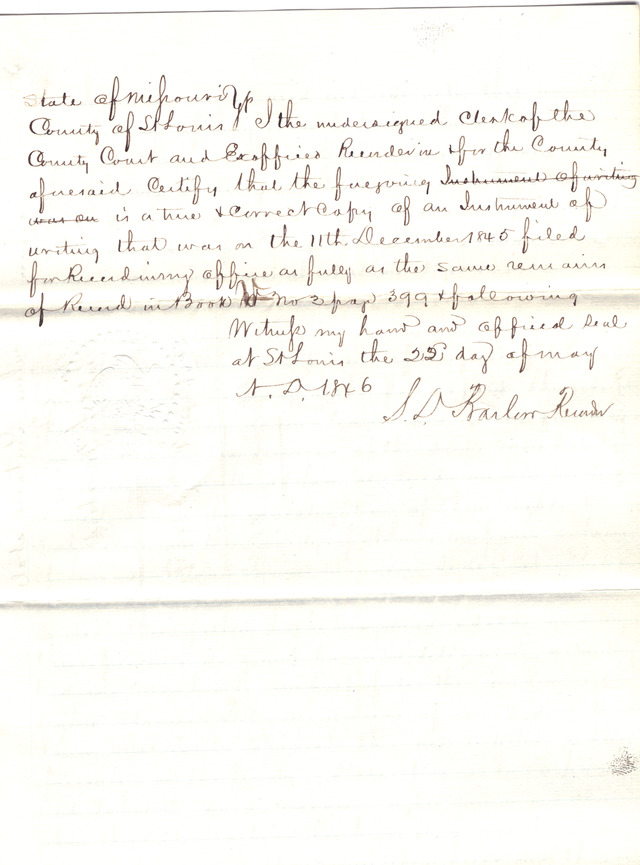 State of Missouri
County of St Louis } ss I the undersigned Clerk of the
County Court and Exofficio Recorder in & for the County
aforesaid Certify that the foregoing Instrument of writing
was on is a true & correct Copy of an Instrument of
writing that was on the 11th December 1845 filed
for Record in my office as fully as the same remains
of Record in Book No 3 page 399 & following
Witness my hand and official seal
at St Louis the 22d day of may
A. D. 1846
S. D. Barlow Recorder